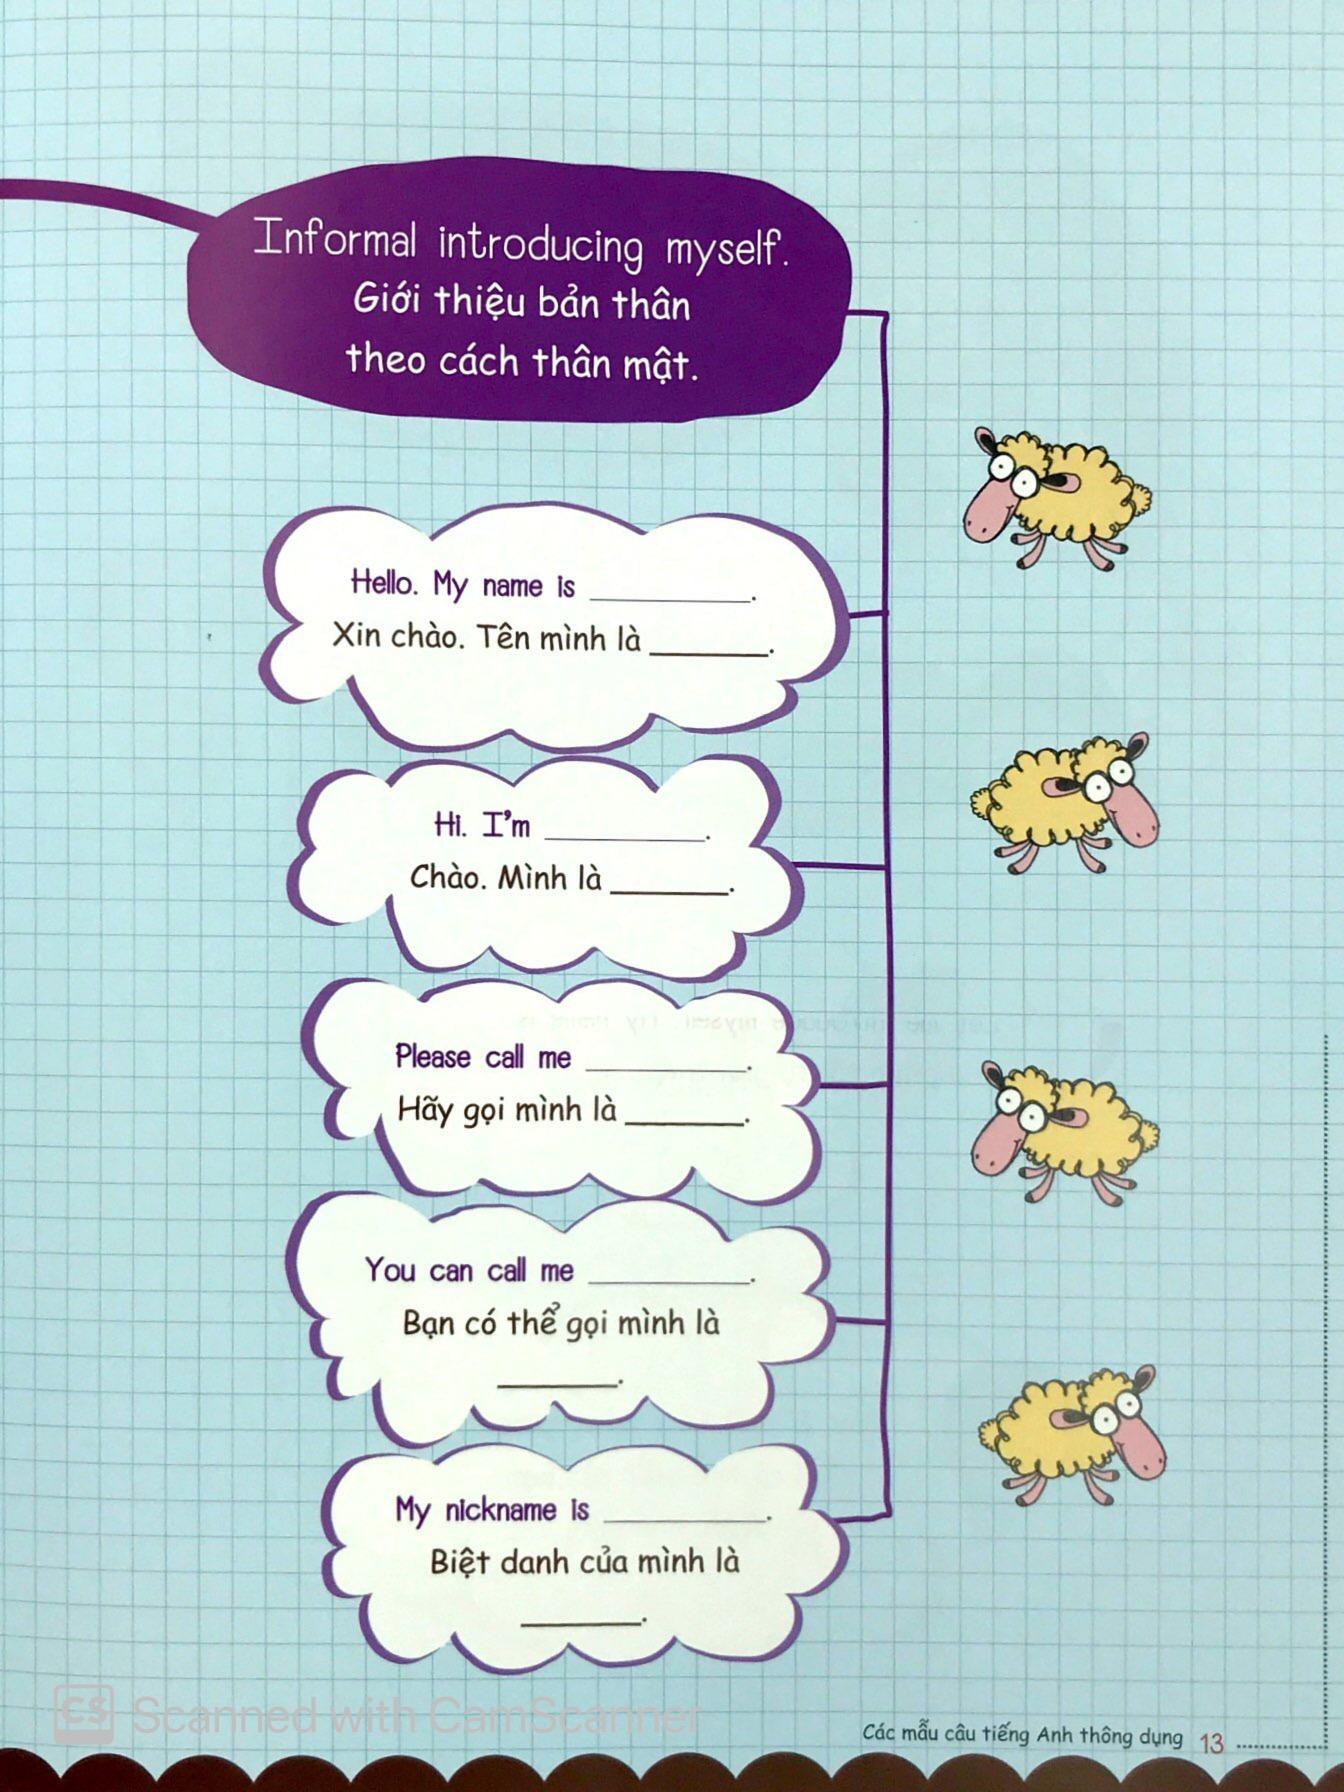 Informal introducing myself.
Giới thiệu bản thân
theo cách thân mật.
Hello. My name is __________.
Xin chào. Tên mình là ________.
Hi. I'm __________.
Chào. Mình là ________.
Please call me __________.
Hãy gọi mình là ________.
You can call me __________.
Bạn có thể gọi mình là
________.
My nickname is __________.
Biệt danh của mình là
________.
CS Scanned with CamScanner
Các mẫu câu tiếng Anh thông dụng 13